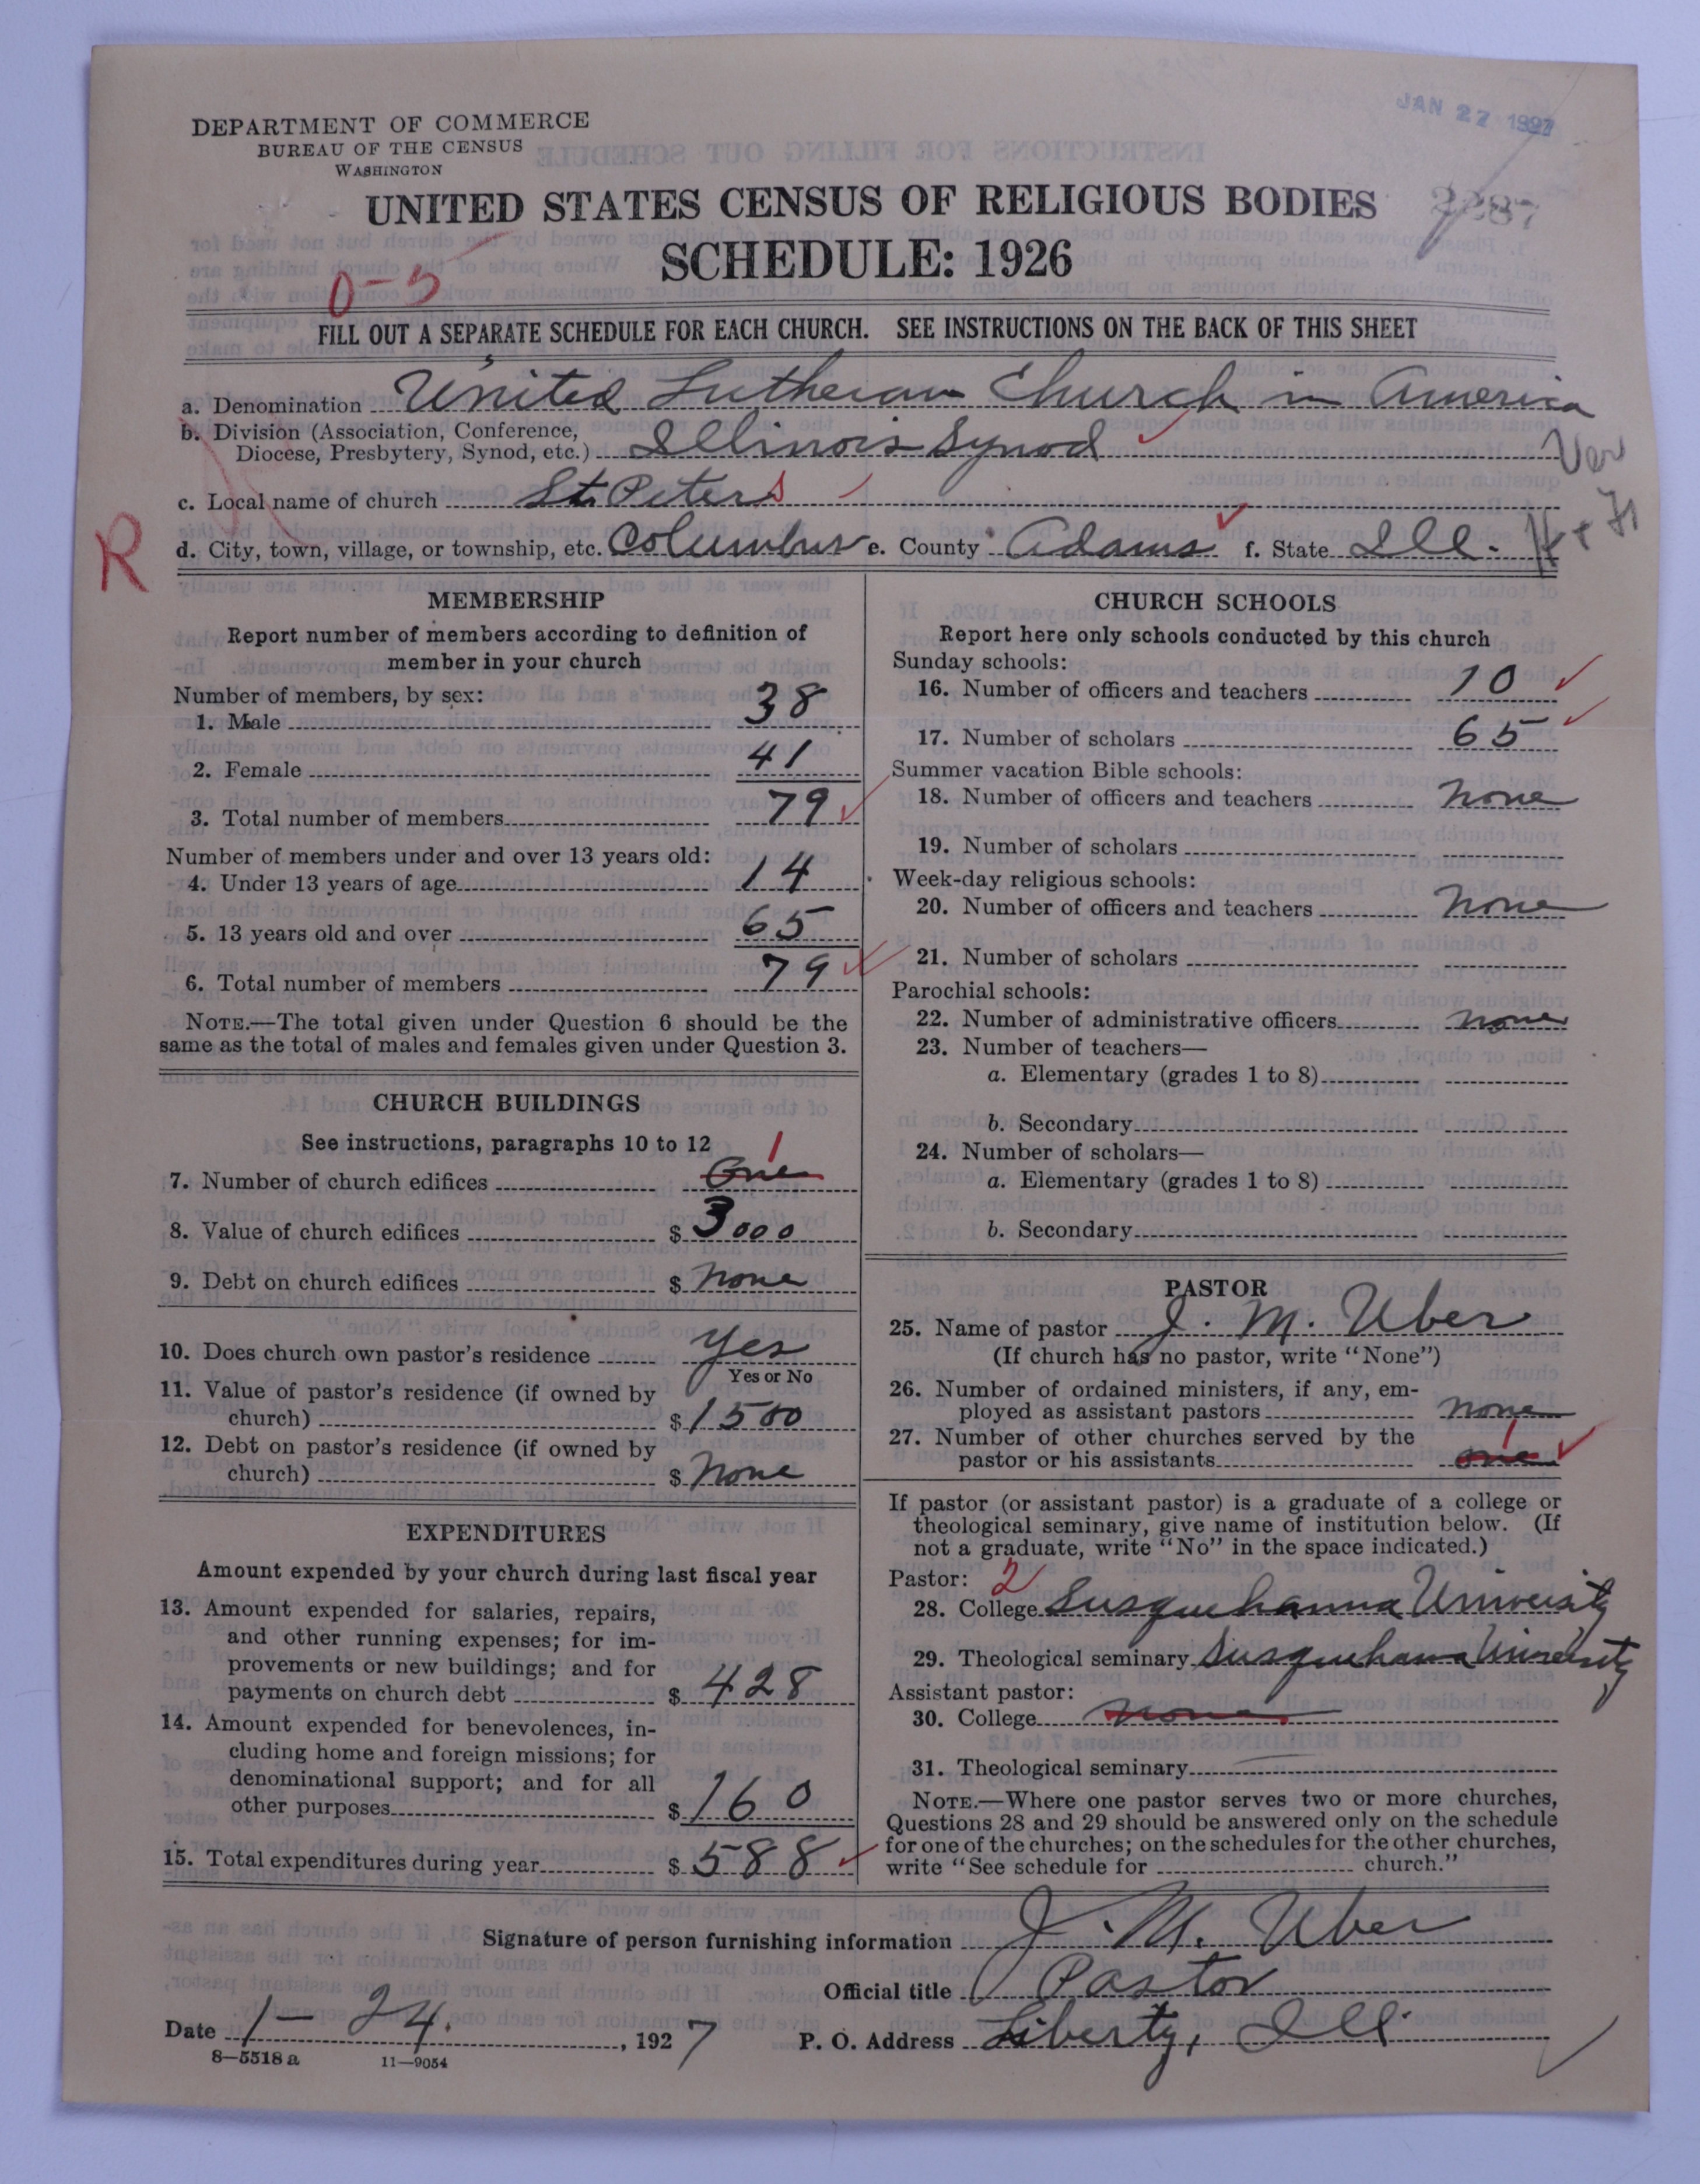 JAN 27 1927
DEPARTMENT OF COMMERCE
BUREAU OF THE CENSUS
WASHINGTON
UNITED STATES CENSUS OF RELIGIOUS BODIES
2287
SCHEDULE: 1926
0-5
FILL OUT A SEPARATE SCHEDULE FOR EACH CHURCH. SEE INSTRUCTIONS ON THE BACK OF THIS SHEET
a. Denomination United Lutheran Church in America
b. Division (Association, Conference,
Diocese, Presbytery, Synod, etc.) Illinois Synod
Ver
c. Local name of church St. Peters
R
d. City, town, village, or township, etc. Columbus e. County Adams f. State Ill.
MEMBERSHIP
Report number of members according to definition of
member in your church
Number of members, by sex:
1. Male 38
2. Female 41
3. Total number of members 79
Number of members under and over 13 years old:
4. Under 13 years of age 14
5. 13 years old and over 65
6. Total number of members 79
NOTE.—The total given under Question 6 should be the
same as the total of males and females given under Question 3.
CHURCH BUILDINGS
See instructions, paragraphs 10 to 12
1
7. Number of church edifices One
8. Value of church edifices $ 3000
9. Debt on church edifices $ None
10. Does church own pastor's residence Yes
Yes or No
11. Value of pastor's residence (if owned by
church) $ 1500
12. Debt on pastor's residence (if owned by
church) $ None
EXPENDITURES
Amount expended by your church during last fiscal year
13. Amount expended for salaries, repairs,
and other running expenses; for im-
provements or new buildings; and for
payments on church debt $ 428
14. Amount expended for benevolences, in-
cluding home and foreign missions; for
denominational support; and for all
other purposes $ 160
15. Total expenditures during year $ 588
CHURCH SCHOOLS
Report here only schools conducted by this church
Sunday schools:
16. Number of officers and teachers 10
17. Number of scholars 65
Summer vacation Bible schools:
18. Number of officers and teachers None
19. Number of scholars
Week-day religious schools:
20. Number of officers and teachers None
21. Number of scholars
Parochial schools:
22. Number of administrative officers None
23. Number of teachers—
a. Elementary (grades 1 to 8)
b. Secondary
24. Number of scholars—
a. Elementary (grades 1 to 8)
b. Secondary
PASTOR
25. Name of pastor J. M. Uber
(If church has no pastor, write "None")
26. Number of ordained ministers, if any, em-
ployed as assistant pastors None
27. Number of other churches served by the
1
pastor or his assistants one
If pastor (or assistant pastor) is a graduate of a college or
theological seminary, give name of institution below. (If
not a graduate, write "No" in the space indicated.)
Pastor: 2
28. College Susquehanna University
29. Theological seminary Susquehanna University
Assistant pastor:
30. College None
31. Theological seminary
NOTE.—Where one pastor serves two or more churches,
Questions 28 and 29 should be answered only on the schedule
for one of the churches; on the schedules for the other churches,
write "See schedule for church."
Signature of person furnishing information J. M. Uber
Official title Pastor
Date 1-24. , 1927 P. O. Address Liberty, Ill.
8—5518 a 11—9054